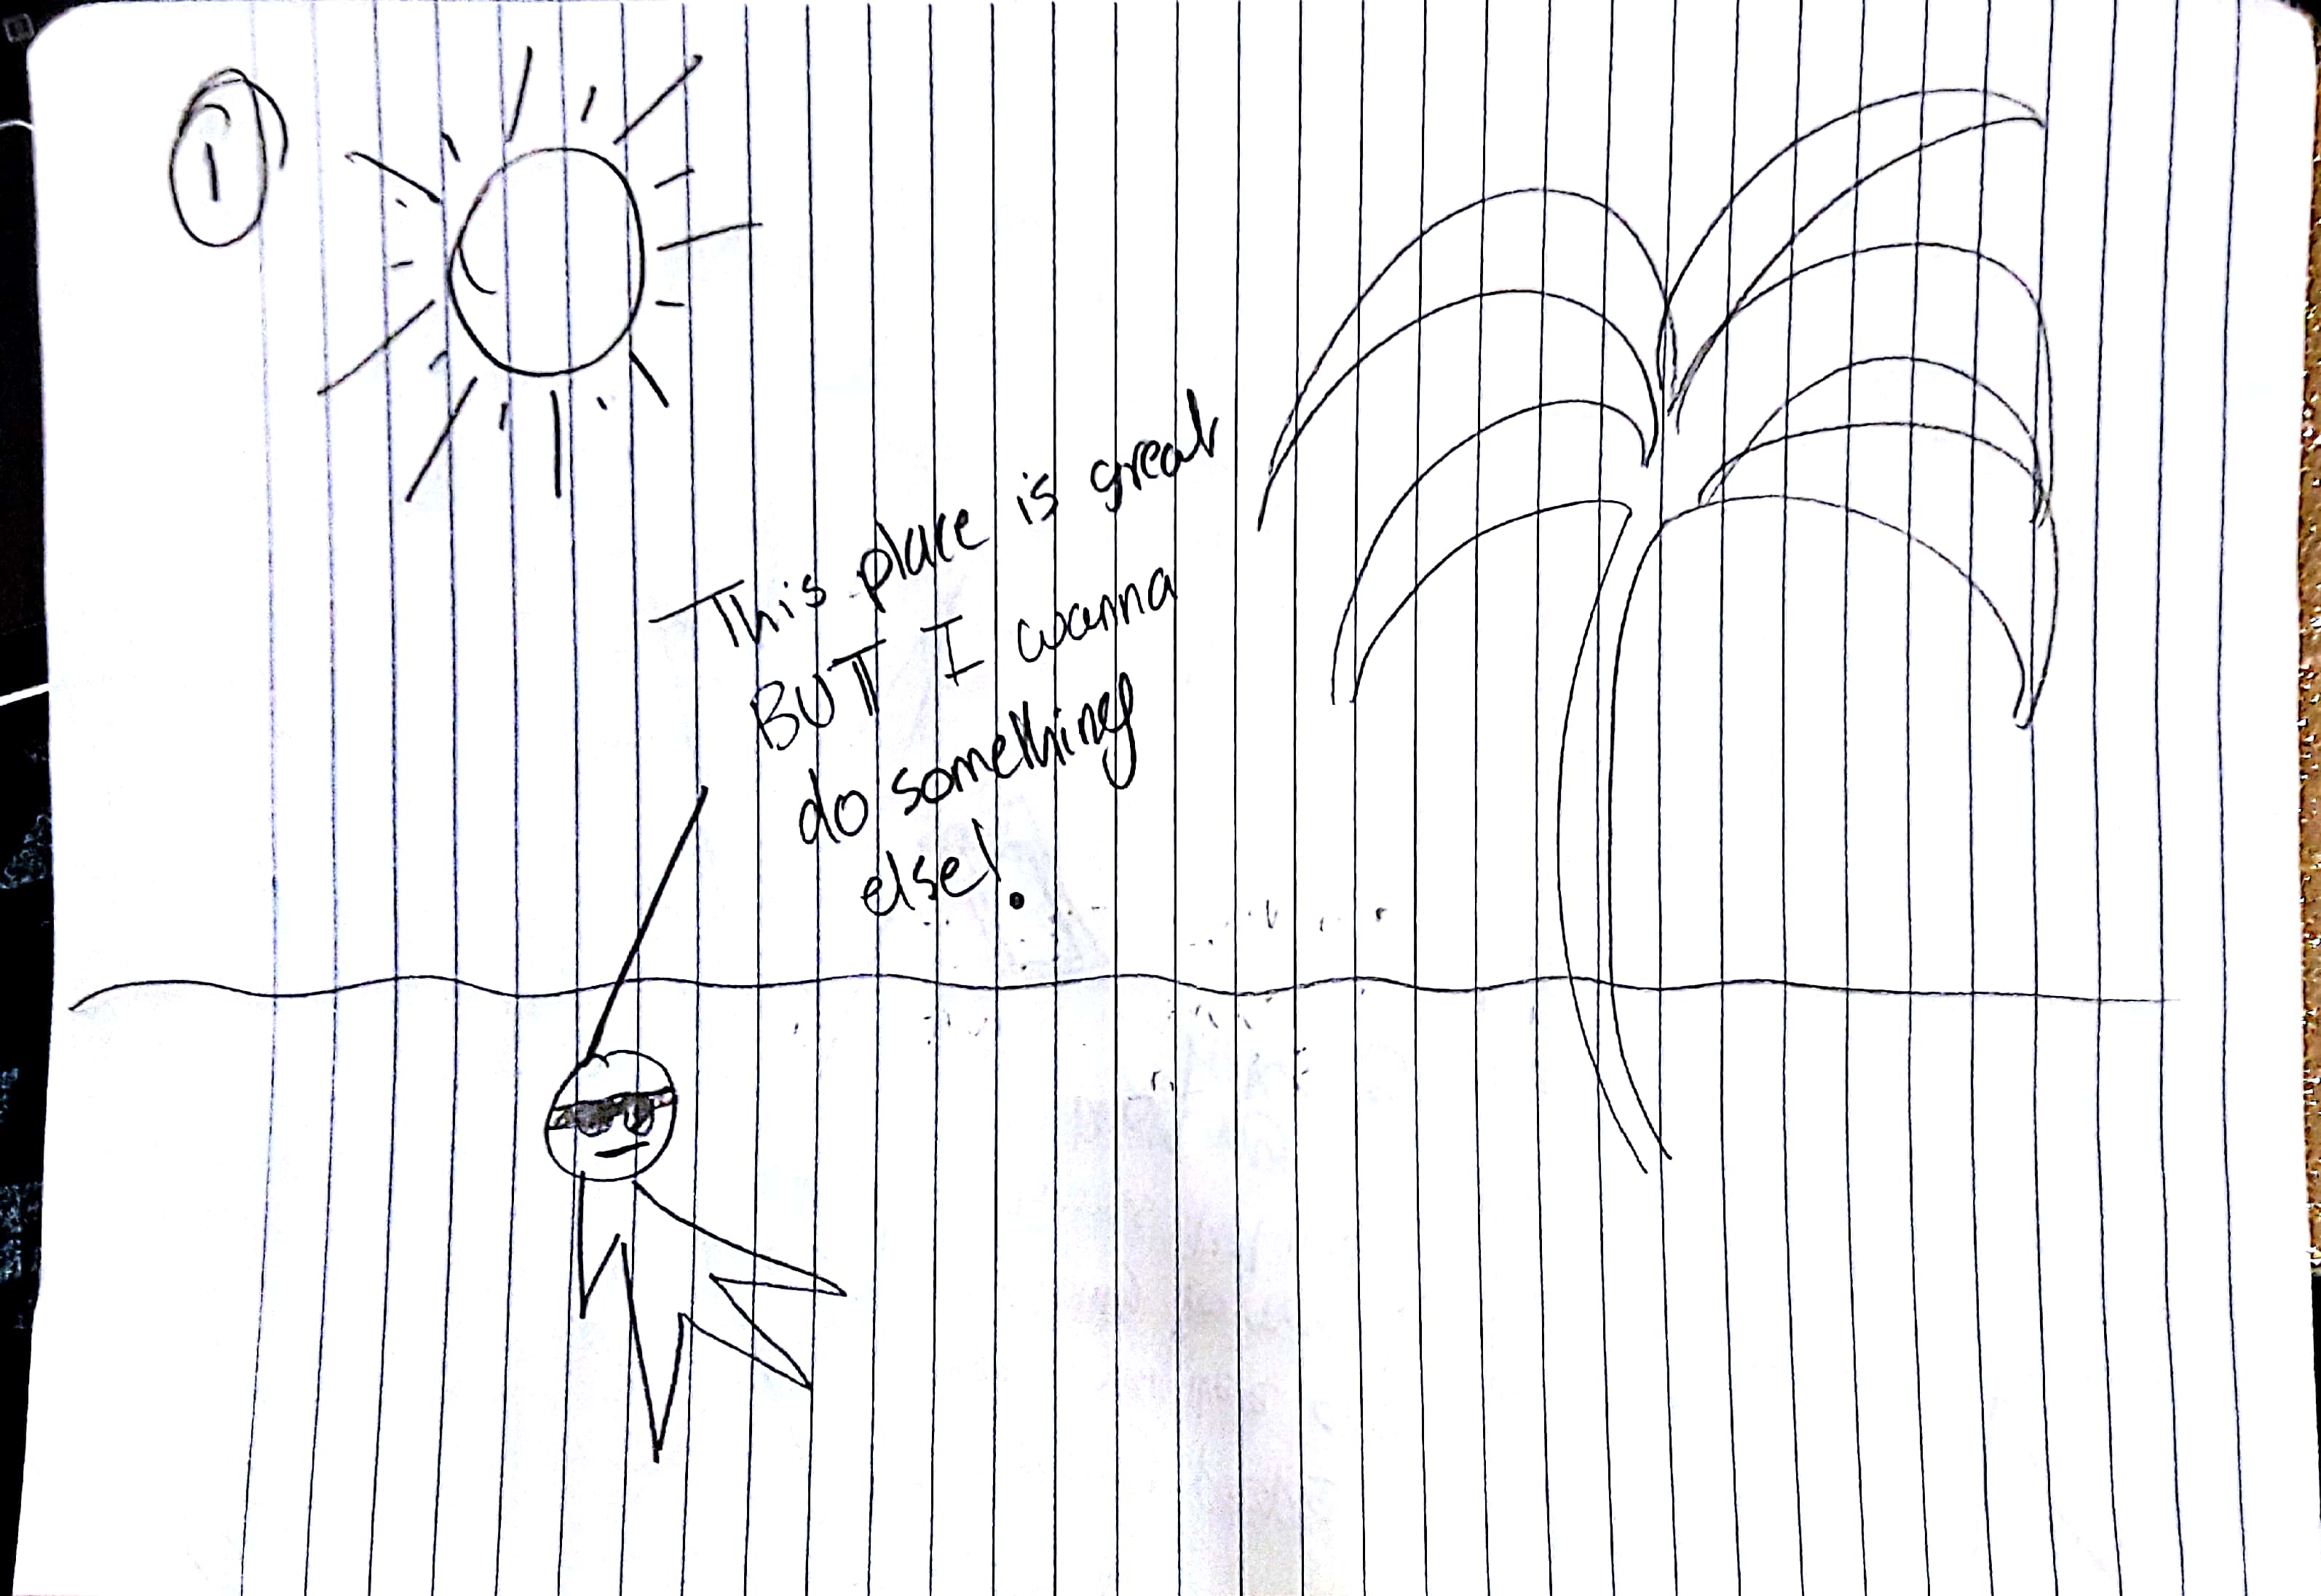 1
This place is great
BUT I wanna
do something
else!